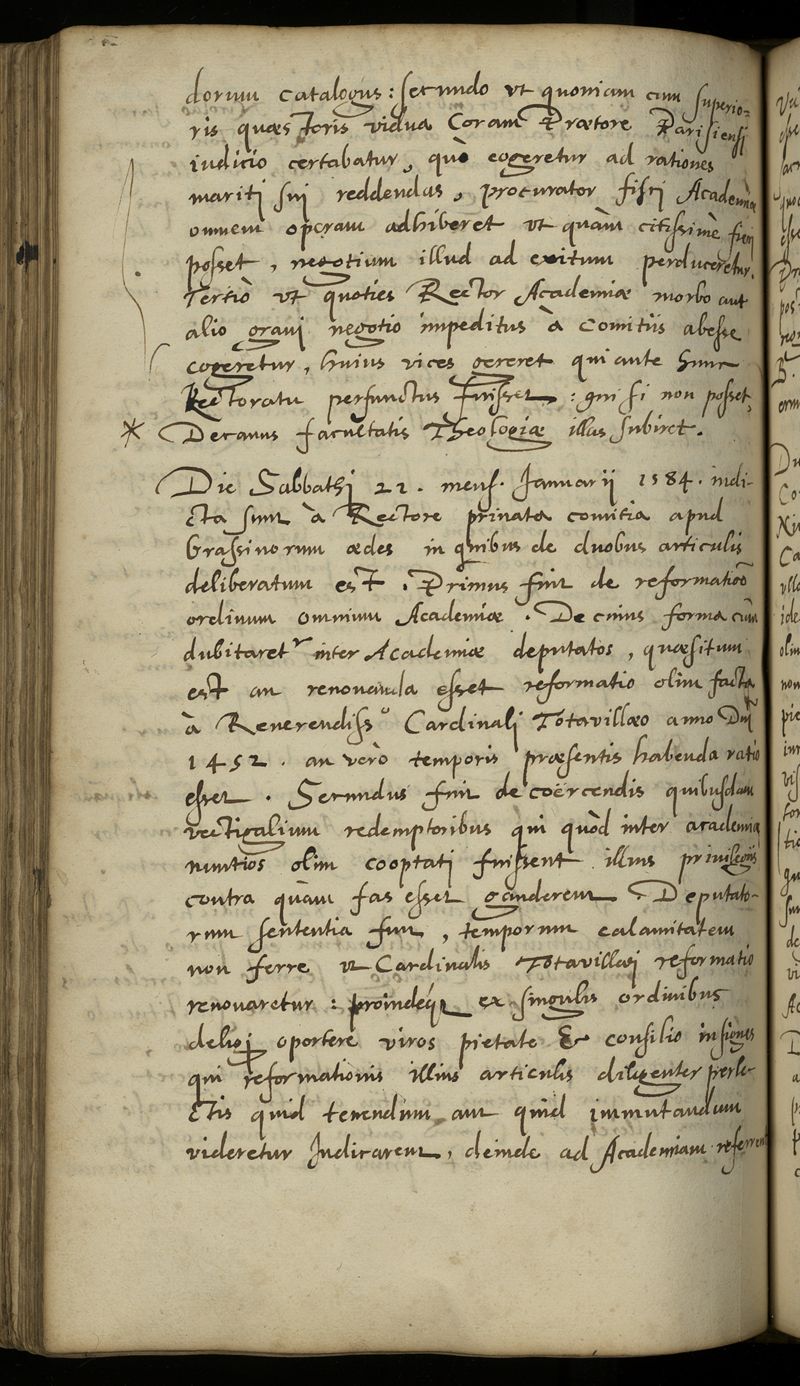 dorum catalogus : secundo ut quoniam cum superio-
ris quæstoris vidua Coram Prætore Parisiensi
iudicio certabatur, quò cogeretur ad rationes
mariti sui reddendas, procurator fisci Academiæ
omnem operam adhiberet ut quàm citissimè fieri
posset, negotium illud ad exitum perduceretur.
Tertiò ut quoties Rector Academiæ morbo aut
alio graui negotio impeditus à Comitiis abesse
cogeretur, huius vices gereret qui ante hunc
Rectoratu perfunctus fuisset : qui si non posset,
* Decanus facultatis Theologiæ illas subiret.
Die Sabbathi 21. mens. Januarii 1584. indi-
cta sunt à Rectore priuata comitia apud
Grassinorum ædes in quibus de duobus articulis
deliberatum est. Primus fuit de reformatiõe
ordinum omnium Academiæ. De cuius forma cùm
dubitaretr inter Academiæ deputatos, quæsitum
est an renouanda esset reformatio olim facta
à Reuerendisso Cardinali Totavillæo anno Dñi
1452. an verò temporis præsentis habenda ratio
esset. Secundus fuit de coërcendis quibusdam
vectigalium redemptoribus qui quòd inter academiæ
nuntios olim cooptati fuissent illius priuilegiis
contra quàm fas esset gauderent. Deputato-
rum sententia fuit, temporum calamitatem
non ferre ut Cardinalis Totavillæi reformatio
renouaretur : proindeq; ex singulis ordinibus
deligi oportere viros pietate & consilio insignes
qui reformationis illius articulis diligenter perle-
ctis quid tenendum aut quid immutandum
videretur Iudicarent, deinde ad Academiam referrent